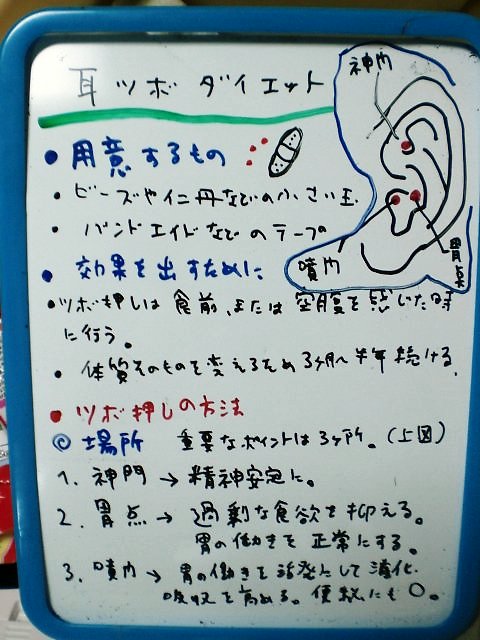 耳ツボダイエット
神門
・用意するもの
・ビーズや仁丹などの小さい玉.
・バンドエイドなどのテープ
胃点
噴門
・効果を出すために
・ツボ押しは食前、または空腹を感じた時
に行う。
・体質そのものを変えるため3ヶ月〜半年続ける.
・ツボ押しの方法
◎場所 重要なポイントは3ヶ所。(上図)
1. 神門 → 精神安定に。
2. 胃点 → 過剰な食欲を抑える。
胃の働きを正常にする。
3. 噴門 → 胃の働きを活発にして消化.
吸収を高める。便秘にも○。